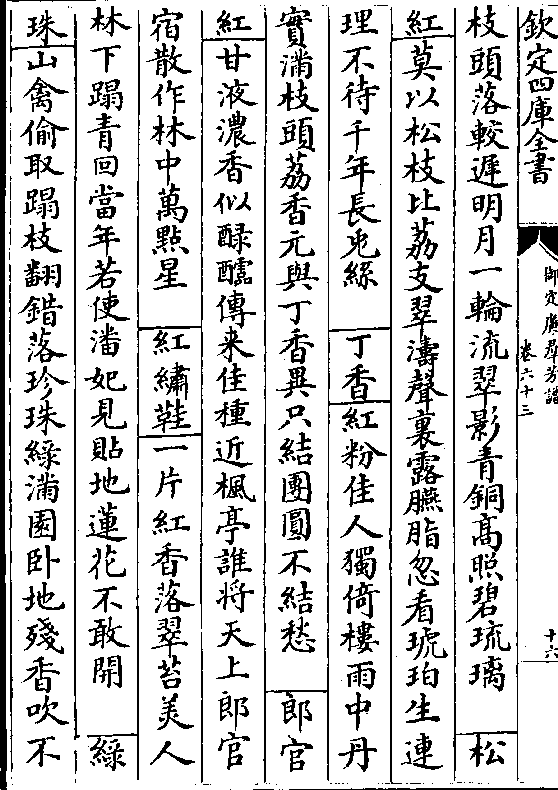 欽定四庫全書
御定廣羣芳譜
卷六十三
十六
枝頭落較遲明月一輪流翠影青銅高照碧琉璃 松
紅 莫以松枝比荔支翠濤聲裏露臙脂忽看琥珀生連
理不待千年長兎絲 丁香紅 粉佳人獨倚樓雨中丹
實滿枝頭荔香元與丁香異只結團圓不結愁 郎官
紅 甘液濃香似醁醽傳来佳種近楓亭誰將天上郎官
宿散作林中萬點星 紅繡鞋 一片紅香落翠苔美人
林下蹋青回當年若使潘妃見貼地蓮花不敢開 綠
珠 山禽偷取蹋枝翻錯落珍珠綠滿園卧地殘香吹不